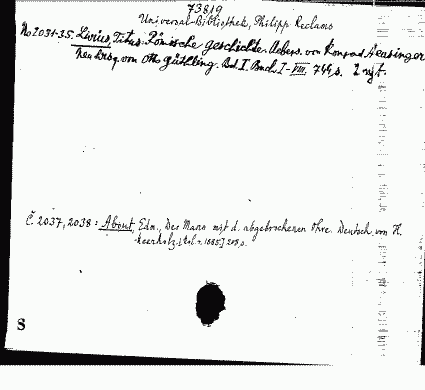 73819
Universal-Bibliothek, Philipp Reclams
No 2031-35. Livius, Titus. Römische geschichte. Uebers. von Konrad Heusinger
neu hrsg. von Otto Güthling. Bd. I. Buch I-VIII. 744 s. 2 výt.
Č 2037, 2038: About, Edm., Der Mann mit d. abgebrochenen Ohre. Deutsch von H.
[1885.] 208 s.
S